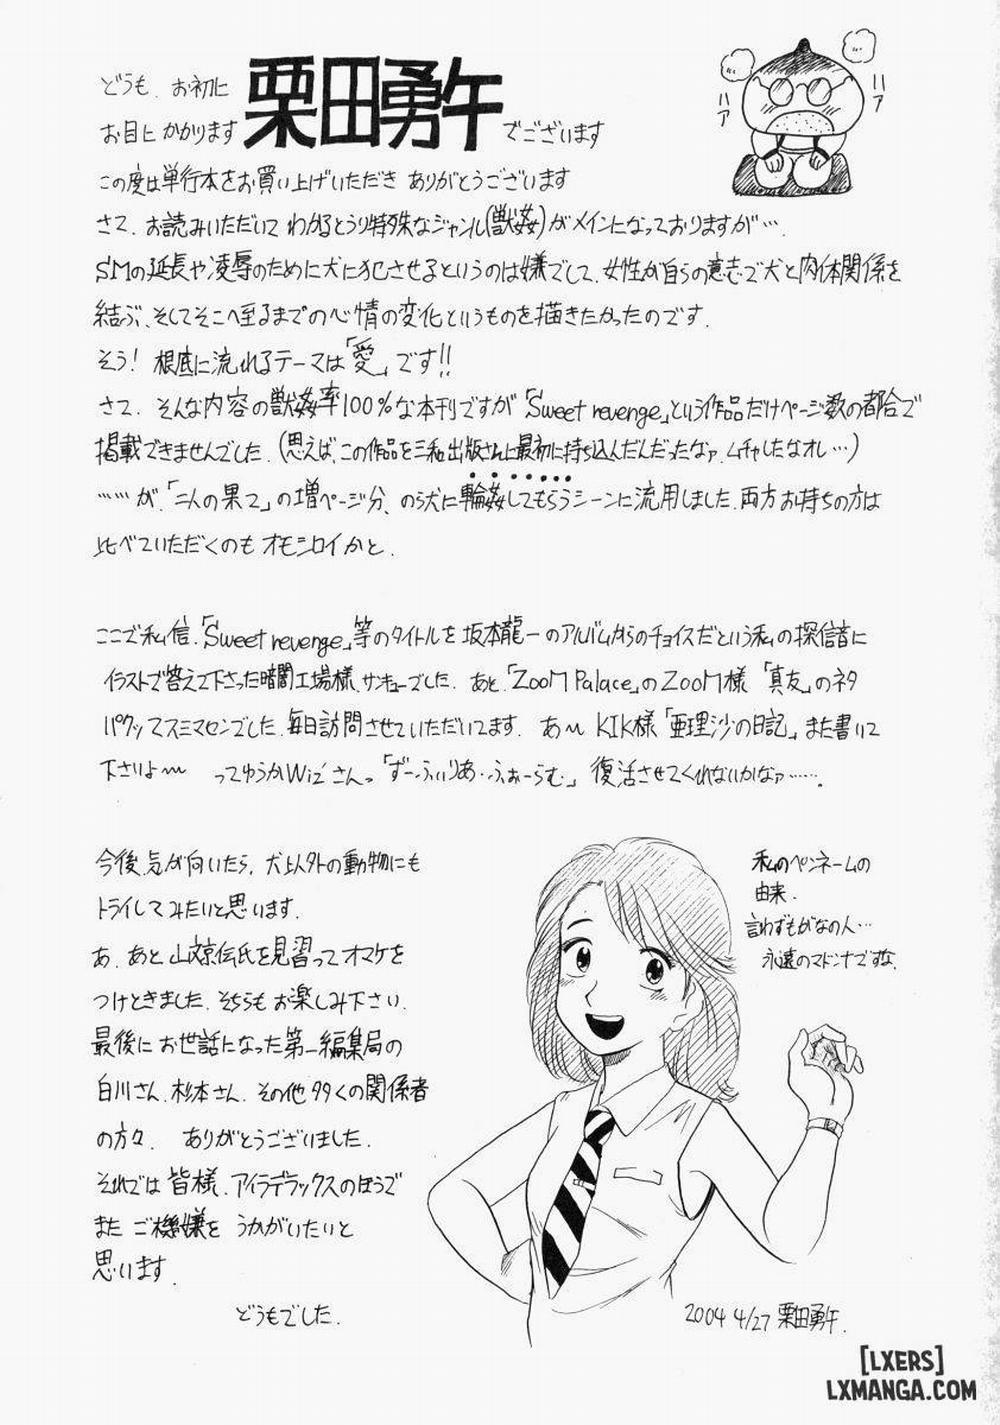 どうも、お初に
お目にかかります
栗田勇午
でございます
ハア
ハア
この度は単行本をお買い上げいただき ありがとうございます
さて、お読みいただいて わかるとうり特殊なジャンル(獣姦)がメインになっておりますが…、
SMの延長や凌辱のために犬に犯させるというのは嫌でして、女性が自らの意志で犬と肉体関係を
結ぶ、そしてそこへ至るまでの心情の変化というものを描きたかったのです.
そう! 根底に流れるテーマは「愛」です!!
さて、そんな内容の獣姦率100%な本刊ですが「Sweet revenge」という作品だけページ数の都合で
掲載できませんでした.(思えば、この作品を三和出版さんに最初に持ち込んだんだったなァ、ムチャしたなオレ…)
……が、「二人の果て」の増ページ分、のら犬に輪姦してもらうシーンに流用しました.両方お持ちの方は
比べていただくのもオモシロイかと.
ここで私信.「Sweet revenge」等のタイトルを坂本龍一のアルバムからのチョイスだという私の探信音に
イラストで答えて下さった暗闇工場様、サンキューでした. あと「ZooM Palace」のZooM様 「真友」のネタ
パクッてスミマセンでした.毎日訪問させていただいてます. あ〜 KIK様「亜理沙の日記」また書いて
下さいよ〜 ってゆうかWiz'さんっ「ずーふぃりあ・ふぉーらむ」 復活させてくれないかなァ…….
今後、気が向いたら、犬以外の動物にも
トライしてみたいと思います.
あ、あと山文京伝氏を見習ってオマケを
つけときました.そちらもお楽しみ下さい.
最後にお世話になった第一編集局の
白川さん、杉本さん、その他多くの関係者
の方々、 ありがとうございました.
それでは皆様、アイラデラックスのほうで
またご機嫌を うかがいたいと
思います.
どうもでした.
私のペンネームの
由来.
言わずもがなの人…
永遠のマドンナですな.
2004 4/27 栗田勇午.
[LXERS]
LXMANGA.COM